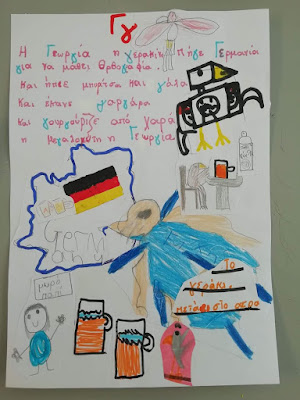 Γγ
Η Γεωργία η γερακίνα πήγε Γερμανία
για να μάθει Ορθογραφία
και ήπιε μπύρτσα και γάλα
και έκανε γαργάρα
και γουργούριζε από χαρά
η μεγαλοκυτη η Γεωργία
Germ
any
Το
γεράκι
πετάει στο αέρα